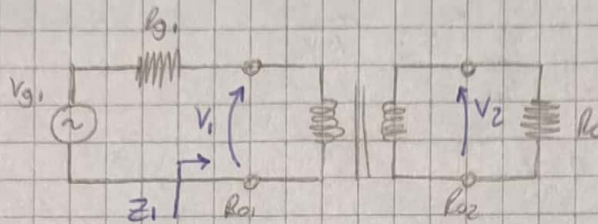 Rg1
Vg1
~
V1
V2
Rc
Z1
R01
R02